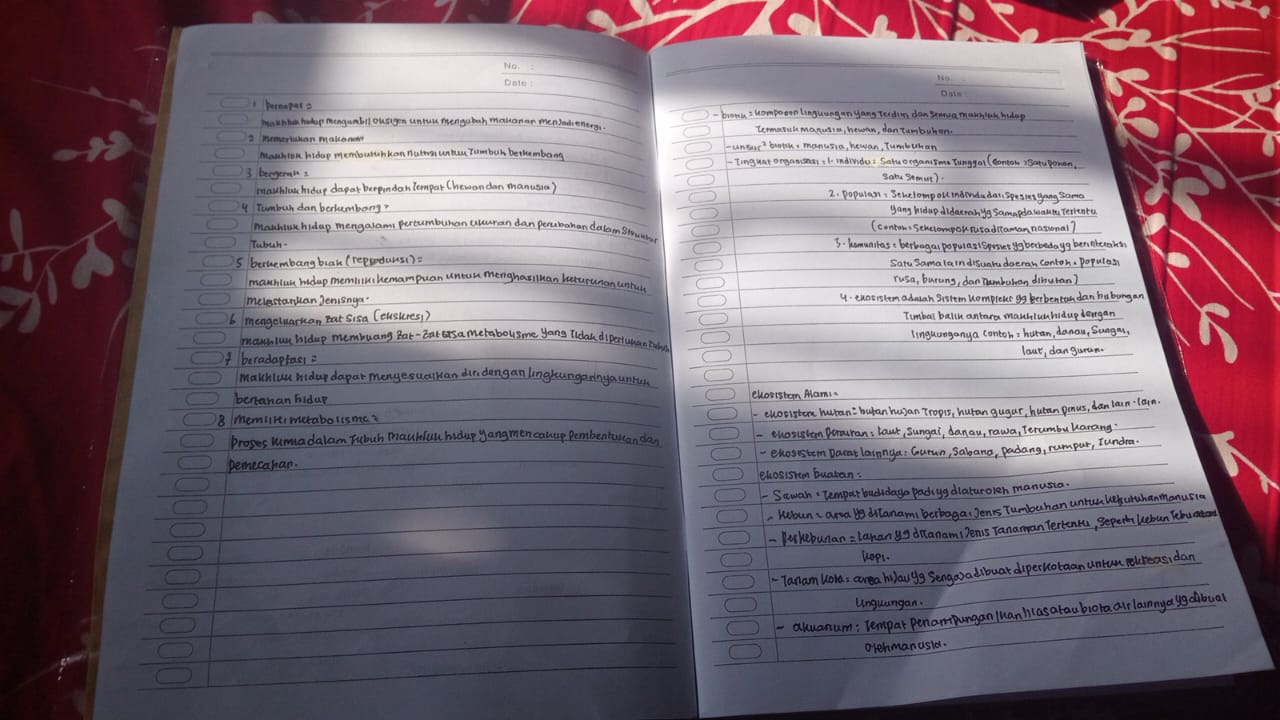 No. :
Date :
1 Bernapas =
makhluk hidup mengambil oksigen untuk mengubah makanan menjadi energi.
2 memerlukan makanan
makhluk hidup membutuhkan nutrisi untuk Tumbuh berkembang
3 bergerak =
makhluk hidup dapat berpindah Tempat (hewan dan manusia)
4 Tumbuh dan berkembang =
makhluk hidup mengalami pertumbuhan ukuran dan perubahan dalam Struktur
Tubuh.
5 berkembang biak (reproduksi) =
makhluk hidup memiliki kemampuan untuk menghasilkan keturunan untuk
melestarikan Jenisnya.
6 mengeluarkan zat Sisa (ekskresi)
makhluk hidup membuang zat-zat sisa metabolisme yang Tidak diperlukan Tubuh
7 beradaptasi =
makhluk hidup dapat menyesuaikan diri dengan lingkungannya untuk
bertahan hidup
8 memiliki metabolisme =
Proses kimia dalam Tubuh makhluk hidup yang mencakup pembentukan dan
pemecahan.
No. :
Date :
- biotik = komponen lingkungan yang Terdiri dari Semua makhluk hidup
Termasuk manusia, hewan, dan Tumbuhan.
- unsur² biotik = manusia, hewan, Tumbuhan
- Tingkat organisasi = 1. individu = Satu organisme Tunggal (contoh = Satu pohon,
satu Semut).
2. populasi = Sekelompok individu dari Spesies yang Sama
yang hidup didaerah yg Sama pda waktu Tertentu
(contoh = Sekelompok rusa di Taman nasional)
3. komunitas = berbagai populasi Spesies yg berbeda yg berinteraksi
Satu Sama lain di suatu daerah contoh = populasi
rusa, burung, dan Tumbuhan dihutan)
4. ekosistem adalah Sistem kompleks yg berbentuk dari hubungan
Timbal balik antara makhluk hidup dengan
lingkungannya contoh = hutan, danau, Sungai,
laut, dan gurun.
ekosistem Alami =
- ekosistem hutan = hutan hujan Tropis, hutan gugur, hutan pinus, dan lain-lain.
- ekosistem perairan : laut, Sungai, danau, rawa, Terumbu karang.
- ekosistem Darat lainnya : Gurun, Sabana, padang, rumput, Tundra.
ekosistem buatan :
- Sawah = Tempat budidaya padi yg diatur oleh manusia.
- kebun = area yg diTanami berbagai Jenis Tumbuhan untuk kebutuhan manusia
- perkebunan = lahan yg diTanami Jenis Tanaman Tertentu, seperti kebun Teh atau
kopi.
- Taman kota = area hijau yg Sengaja dibuat diperkotaan untuk rekreasi dan
lingkungan.
- akuarium : Tempat penampungan ikan hias atau biota air lainnya yg dibuat
oleh manusia.